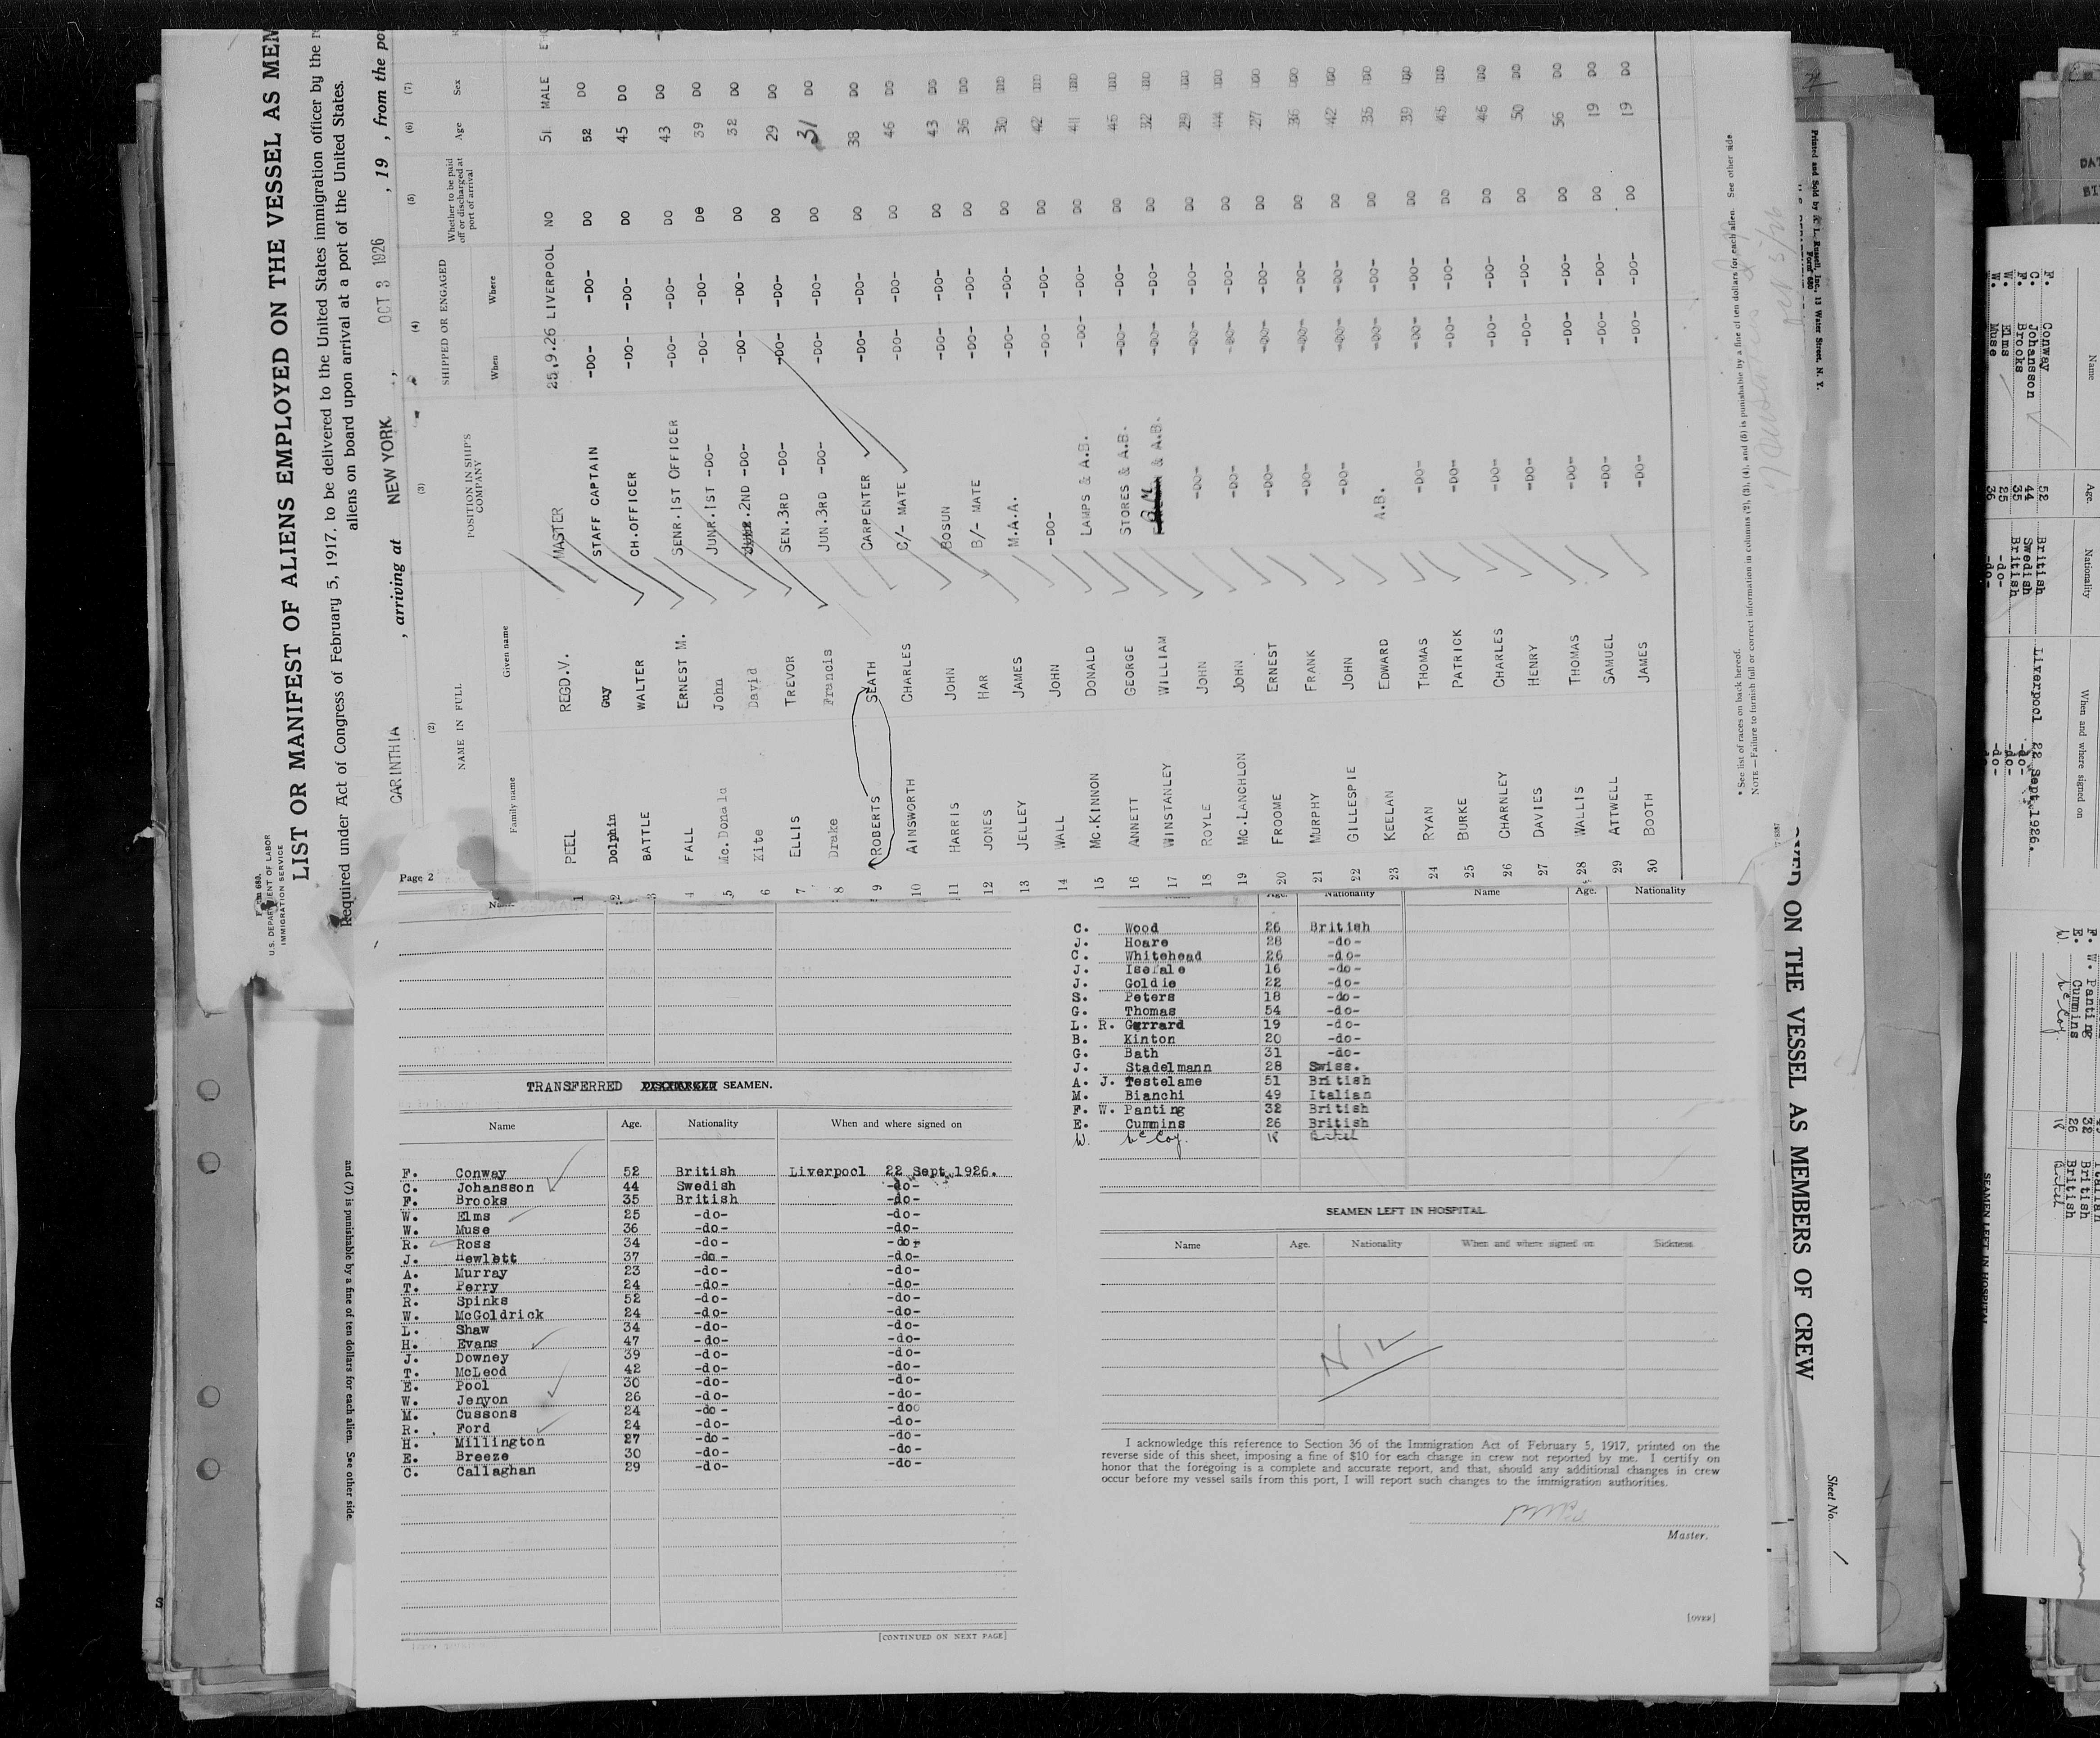 Form 680.
U.S. DEPARTMENT OF LABOR
IMMIGRATION SERVICE
LIST OR MANIFEST OF ALIENS EMPLOYED ON THE VESSEL AS MEM
Required under Act of Congress of February 5, 1917, to be delivered to the United States immigration officer by the re
aliens on board upon arrival at a port of the United States.
CARINTHIA , arriving at NEW YORK , OCT 3 1926 , 19 , from the por
(2) (3) (4) (5) (6) (7)
NAME IN FULL POSITION IN SHIP'S COMPANY SHIPPED OR ENGAGED Whether to be paid off or discharged at port of arrival Age Sex
Family name Given name When Where
1 PEEL REGD.V. MASTER 25.9.26 LIVERPOOL NO 51 MALE
2 Dolphin Guy STAFF CAPTAIN -DO- -DO- DO 52 DO
3 BATTLE WALTER CH.OFFICER -DO- -DO- DO 45 DO
4 FALL ERNEST M. SENR.1ST OFFICER -DO- -DO- DO 43 DO
5 Mc.Donald John JUNR.1ST -DO- -DO- -DO- DO 39 DO
6 Kite David 2ND -DO- -DO- -DO- DO 32 DO
7 ELLIS TREVOR SEN.3RD -DO- -DO- -DO- DO 29 DO
8 Drake Francis JUN.3RD -DO- -DO- -DO- DO 31 DO
9 ROBERTS SEATH CARPENTER -DO- -DO- DO 38 DO
10 AINSWORTH CHARLES C/- MATE -DO- -DO- DO 46 DO
11 HARRIS JOHN BOSUN -DO- -DO- DO 43 DO
12 JONES HAR B/- MATE -DO- -DO- DO 36 DO
13 JELLEY JAMES M.A.A. -DO- -DO- DO 30 DO
14 WALL JOHN -DO- -DO- -DO- DO 42 DO
15 Mc.KINNON DONALD LAMPS & A.B. -DO- -DO- DO 41 DO
16 ANNETT GEORGE STORES & A.B. -DO- -DO- DO 46 DO
17 WINSTANLEY WILLIAM & A.B. -DO- -DO- DO 32 DO
18 ROYLE JOHN -DO- -DO- -DO- DO 29 DO
19 Mc.LANCHLON JOHN -DO- -DO- -DO- DO 44 DO
20 FROOME ERNEST -DO- -DO- -DO- DO 27 DO
21 MURPHY FRANK -DO- -DO- -DO- DO 36 DO
22 GILLESPIE JOHN -DO- -DO- -DO- DO 42 DO
23 KEELAN EDWARD A.B. -DO- -DO- DO 35 DO
24 RYAN THOMAS -DO- -DO- -DO- DO 39 DO
25 BURKE PATRICK -DO- -DO- -DO- DO 45 DO
26 CHARNLEY CHARLES -DO- -DO- -DO- DO 46 DO
27 DAVIES HENRY -DO- -DO- -DO- DO 50 DO
28 WALLIS THOMAS -DO- -DO- -DO- DO 56 DO
29 ATTWELL SAMUEL -DO- -DO- -DO- DO 19 DO
30 BOOTH JAMES -DO- -DO- -DO- DO 19 DO
* See list of races on back hereof.
NOTE—Failure to furnish full or correct information in columns (2), (3), (4), and (6) is punishable by a fine of ten dollars for each alien. See other side
Page 2
TRANSFERRED SEAMEN.
Name Age. Nationality When and where signed on
F. Conway 52 British Liverpool 22 Sept 1926.
C. Johansson 44 Swedish -do-
F. Brooks 35 British -do-
W. Elms 25 -do- -do-
W. Muse 36 -do- -do-
R. Ross 34 -do- -do-
J. Hewlett 37 -do- -do-
A. Murray 23 -do- -do-
T. Perry 24 -do- -do-
R. Spinks 52 -do- -do-
W. McGoldrick 24 -do- -do-
L. Shaw 34 -do- -do-
H. Evans 47 -do- -do-
J. Downey 39 -do- -do-
T. McLeod 42 -do- -do-
E. Pool 30 -do- -do-
W. Jenyon 26 -do- -do-
M. Cussons 24 -do- -do
R. Ford 24 -do- -do-
H. Millington 27 -do- -do-
E. Breeze 30 -do- -do-
C. Callaghan 29 -do- -do-
[CONTINUED ON NEXT PAGE]
Name Age. Nationality Name Age. Nationality
C. Wood 26 British
J. Hoare 28 -do-
C. Whitehead 26 -do-
J. Isefale 16 -do-
J. Goldie 22 -do-
S. Peters 18 -do-
G. Thomas 54 -do-
L. R. Garrard 19 -do-
B. Kinton 20 -do-
G. Bath 31 -do-
J. Stadelmann 28 Swiss.
A. J. Testelame 51 British
M. Bianchi 49 Italian
F. W. Panting 32 British
E. Cummins 26 British
W. McCoy. 18 British
SEAMEN LEFT IN HOSPITAL
Name Age. Nationality When and where signed on Sickness
Nil
I acknowledge this reference to Section 36 of the Immigration Act of February 5, 1917, printed on the
reverse side of this sheet, imposing a fine of $10 for each change in crew not reported by me. I certify on
honor that the foregoing is a complete and accurate report, and that, should any additional changes in crew
occur before my vessel sails from this port, I will report such changes to the immigration authorities.
Master.
[OVER]
and (7) is punishable by a fine of ten dollars for each alien. See other side.
Printed and Sold by L. Russell, Inc., 13 Water Street, N. Y.
Form 680
ON THE VESSEL AS MEMBERS OF CREW
Sheet No. 1
Name Age. Nationality When and where signed on
F. Conway 52 British Liverpool 22 Sept 1926.
C. Johansson 44 Swedish -do-
F. Brooks 35 British -do-
W. Elms 25 -do- -do-
W. Muse 36 -do- -do-
F. W. Panting 32 British
E. Cummins 26 British
W. McCoy 18 British
SEAMEN LEFT IN HOSPITAL